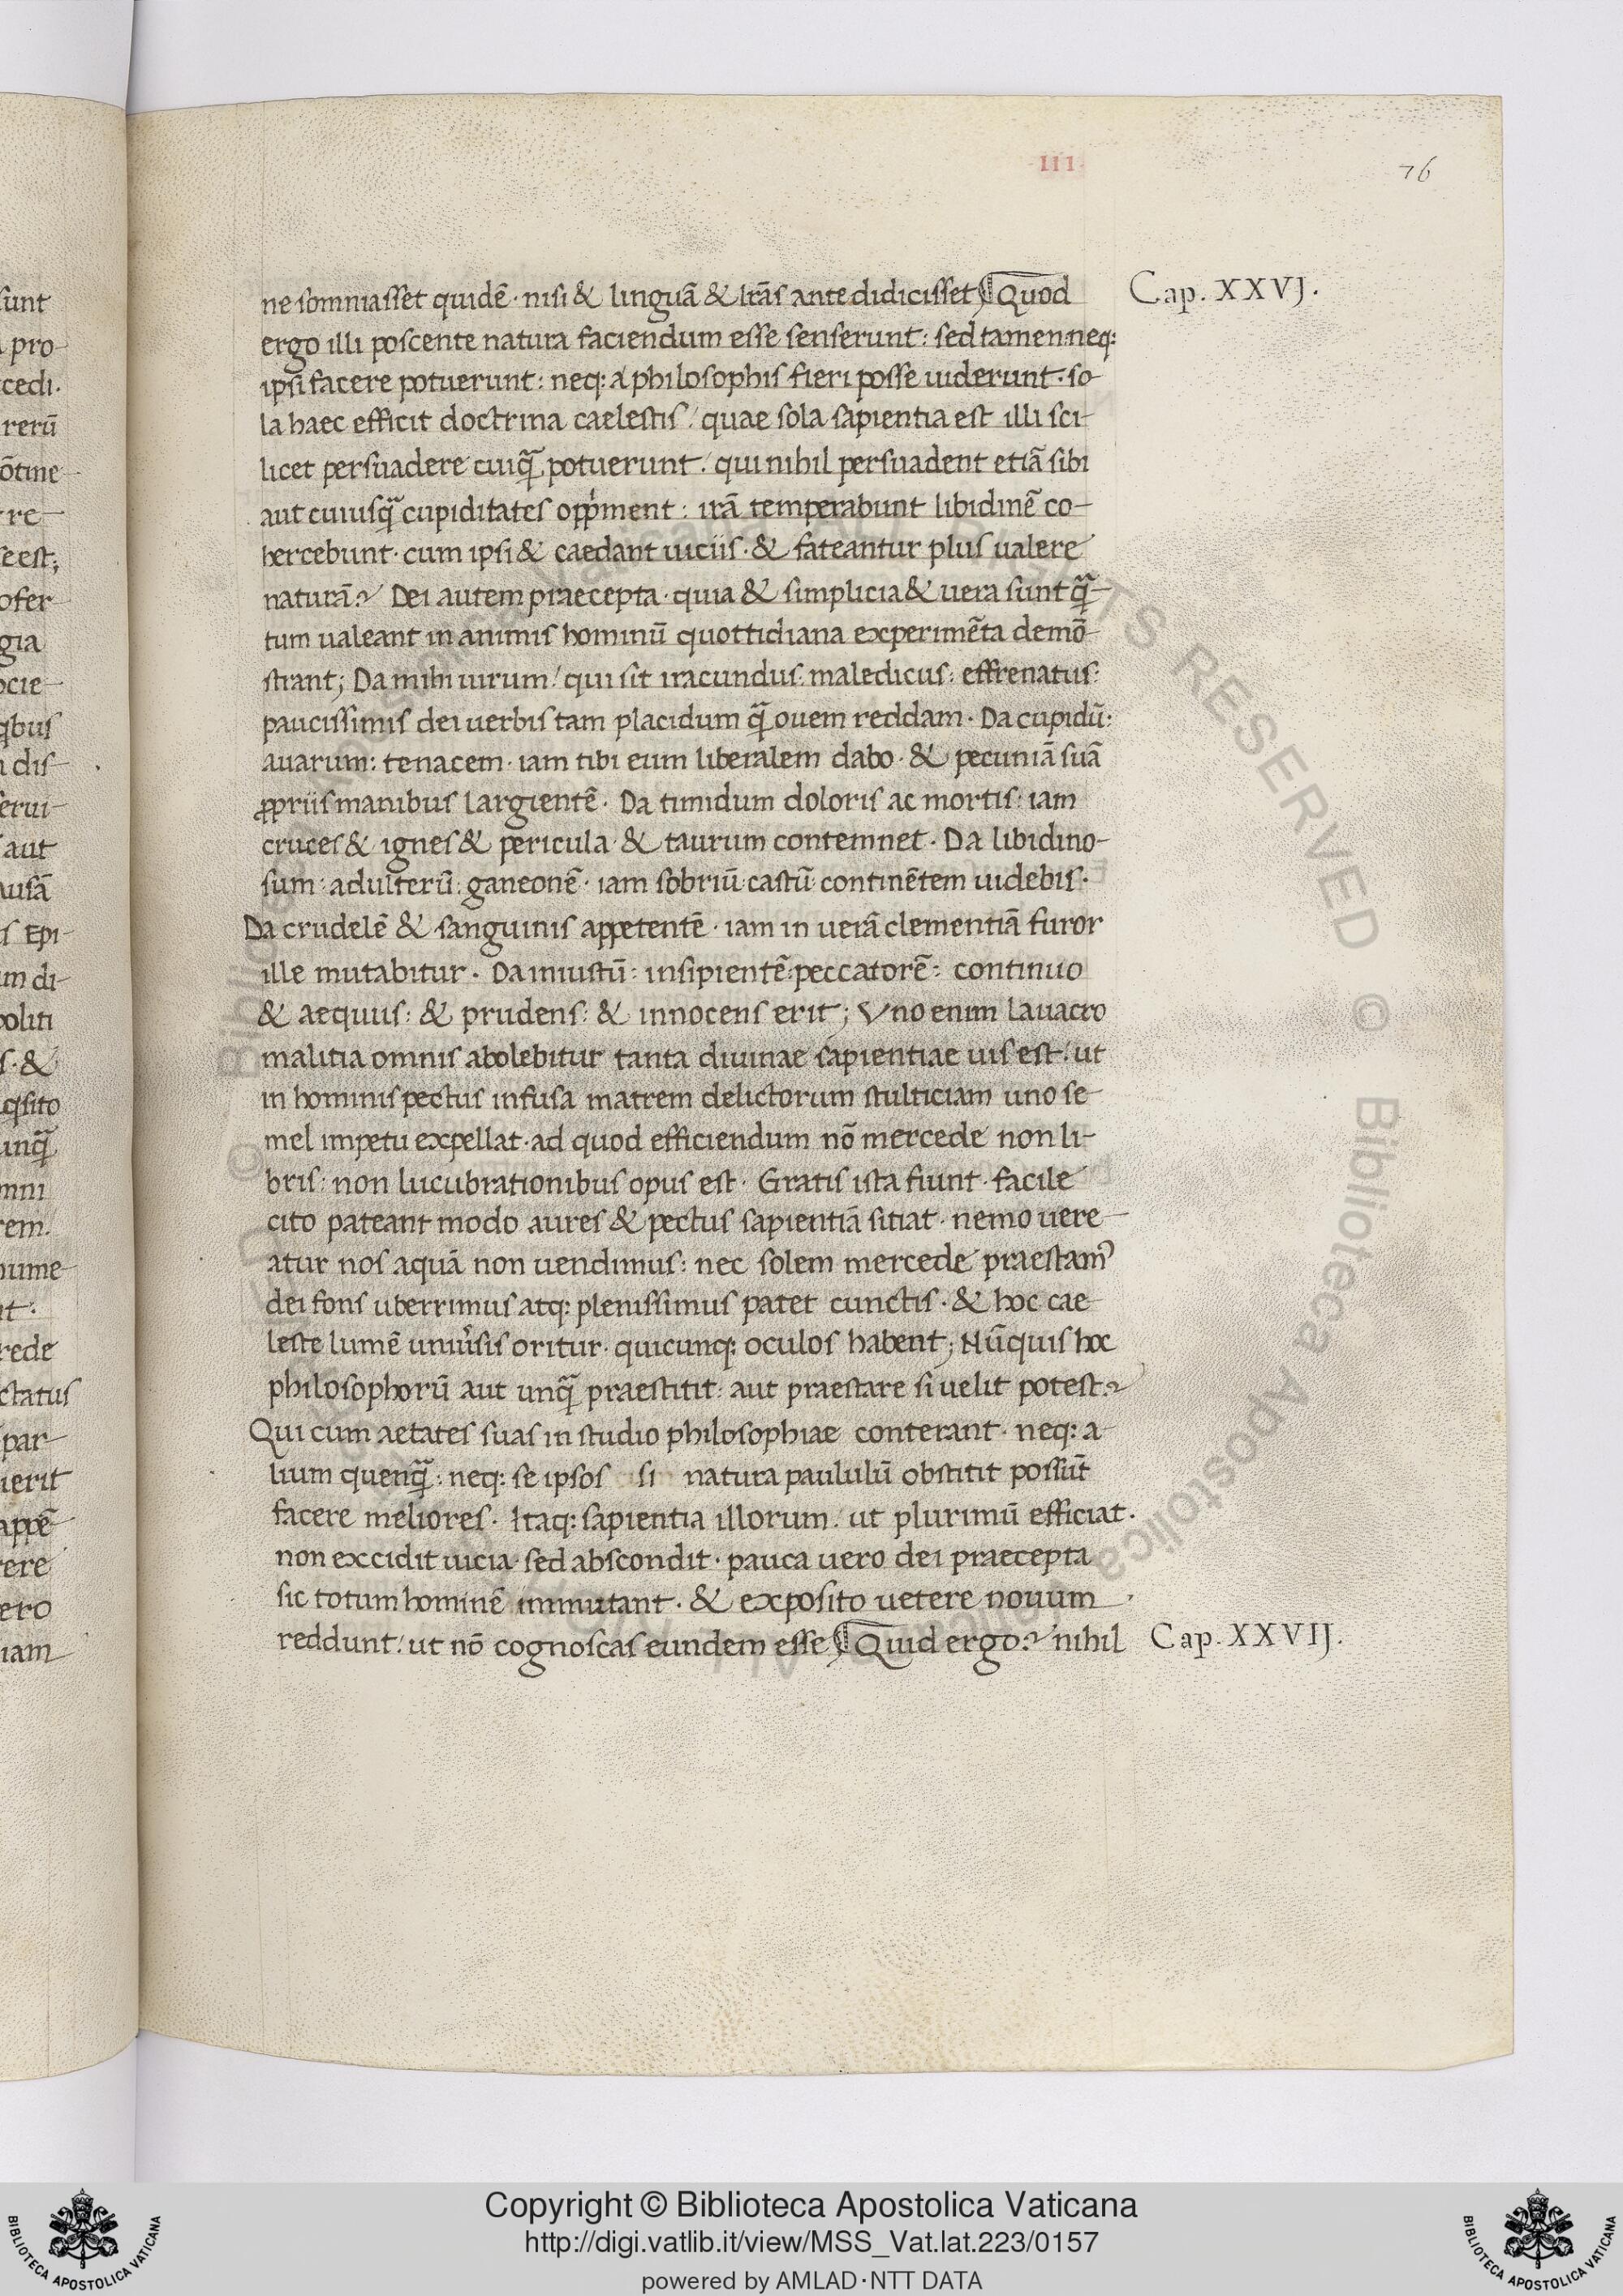 III
76
ne somniasset quidē · nisi & linguā & lr̄as ante didicisset; Quod
Cap. XXVJ.
ergo illi poscente natura faciendum esse senserunt: sed tamen neq:
ipsi facere potuerunt: neq: a philosophis fieri posse uiderunt · so-
la haec efficit doctrina caelestis / quae sola sapientia est illi sci-
licet persuadere cuiq̄ potuerunt / qui nihil persuadent etiā sibi
aut cuiusq̄ cupiditates opp'ment: irā temperabunt libidinē co-
hercebunt · cum ipsi & caedant uiciis · & fateantur plus ualere
naturā? Dei autem praecepta · quia & simplicia & uera sunt q̄-
tum ualeant in animis hominū quottidiana experimēta demō-
strant; Da mihi uirum / qui sit iracundus: maledicus: effrenatus:
paucissimis dei uerbis tam placidum q̄ ouem reddam · Da cupidū:
auarum: tenacem · iam tibi eum liberalem dabo · & pecuniā suā
ꝓpriis manibus largientē · Da timidum doloris ac mortis: iam
cruces & ignes & pericula & taurum contemnet · Da libidino-
sum: adulterū: ganeonē · iam sobriū: castū: continētem uidebis ·
Da crudelē & sanguinis appetentē · iam in uerā clementiā furor
ille mutabitur · Da iniustū: insipientē: peccatorē: continuo
& aequus: & prudens: & innocens erit; Vno enim lauacro
malitia omnis abolebitur tanta diuinae sapientiae uis est / ut
in hominis pectus infusa matrem delictorum stulticiam uno se-
mel impetu expellat · ad quod efficiendum nō mercede non li-
bris: non lucubrationibus opus est · Gratis ista fiunt · facile
cito pateant modo aures & pectus sapientiā sitiat · nemo uere-
atur nos aquā non uendimus: nec solem mercede praestam'
dei fons uberrimus atq: plenissimus patet cunctis · & hoc cae-
leste lumē uniu'sis oritur · quicunq: oculos habent; Nūquis hoc
philosophorū aut unq̄ praestitit: aut praestare si uelit potest?
Qui cum aetates suas in studio philosophiae conterant · neq: a-
lium quenq̄: neq: se ipsos si natura paululū obstitit possūt
facere meliores · Itaq: sapientia illorum / ut plurimū efficiat ·
non excidit uicia · sed abscondit · pauca uero dei praecepta
sic totum hominē immutant · & exposito uetere nouum
reddunt / ut nō cognoscas eundem esse; Quid ergo? nihil
Cap. XXVIJ.
Copyright © Biblioteca Apostolica Vaticana
http://digi.vatlib.it/view/MSS_Vat.lat.223/0157
powered by AMLAD·NTT DATA